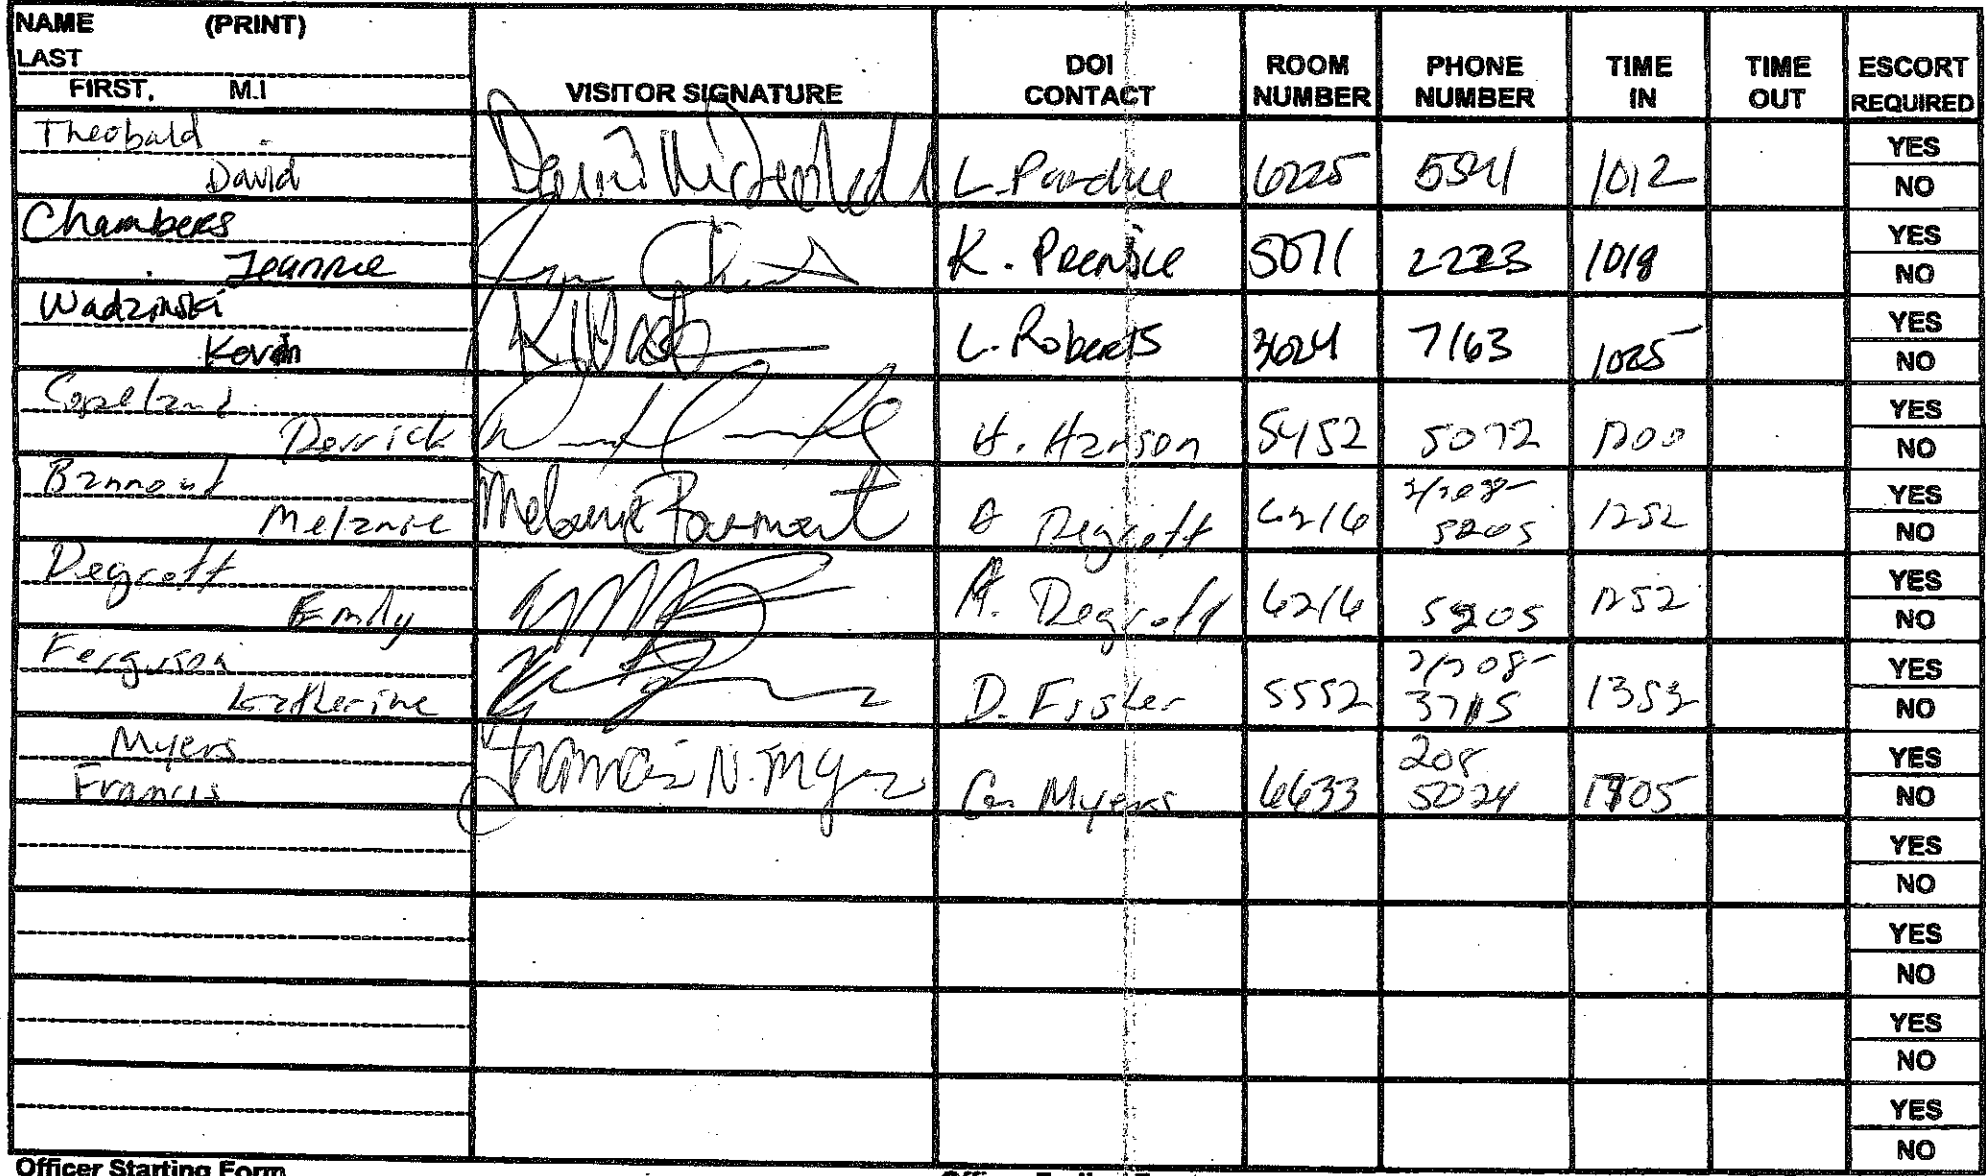 NAME (PRINT)
LAST
FIRST, M.I
VISITOR SIGNATURE
DOI CONTACT
ROOM NUMBER
PHONE NUMBER
TIME IN
TIME OUT
ESCORT REQUIRED
Theobald
David
6225
1012
YES
NO
Chambers
Jeannie
K.
5071
2223
1018
YES
NO
Wadzinski
Kevin
L. Roberts
3624
7163
1025
YES
NO
Copeland
Derrick
H. Hanson
5452
5072
1200
YES
NO
Melanie
Melanie
Degroft
6216
5205
1252
YES
NO
Degroft
Emily
A. Degroft
6216
5205
1252
YES
NO
Ferguson
Katherine
D.
5552
3715
1353
YES
NO
Myers
Francis
N.
Myers
6633
208
5024
YES
NO
YES
NO
YES
NO
YES
NO
YES
NO
Officer Starting Form